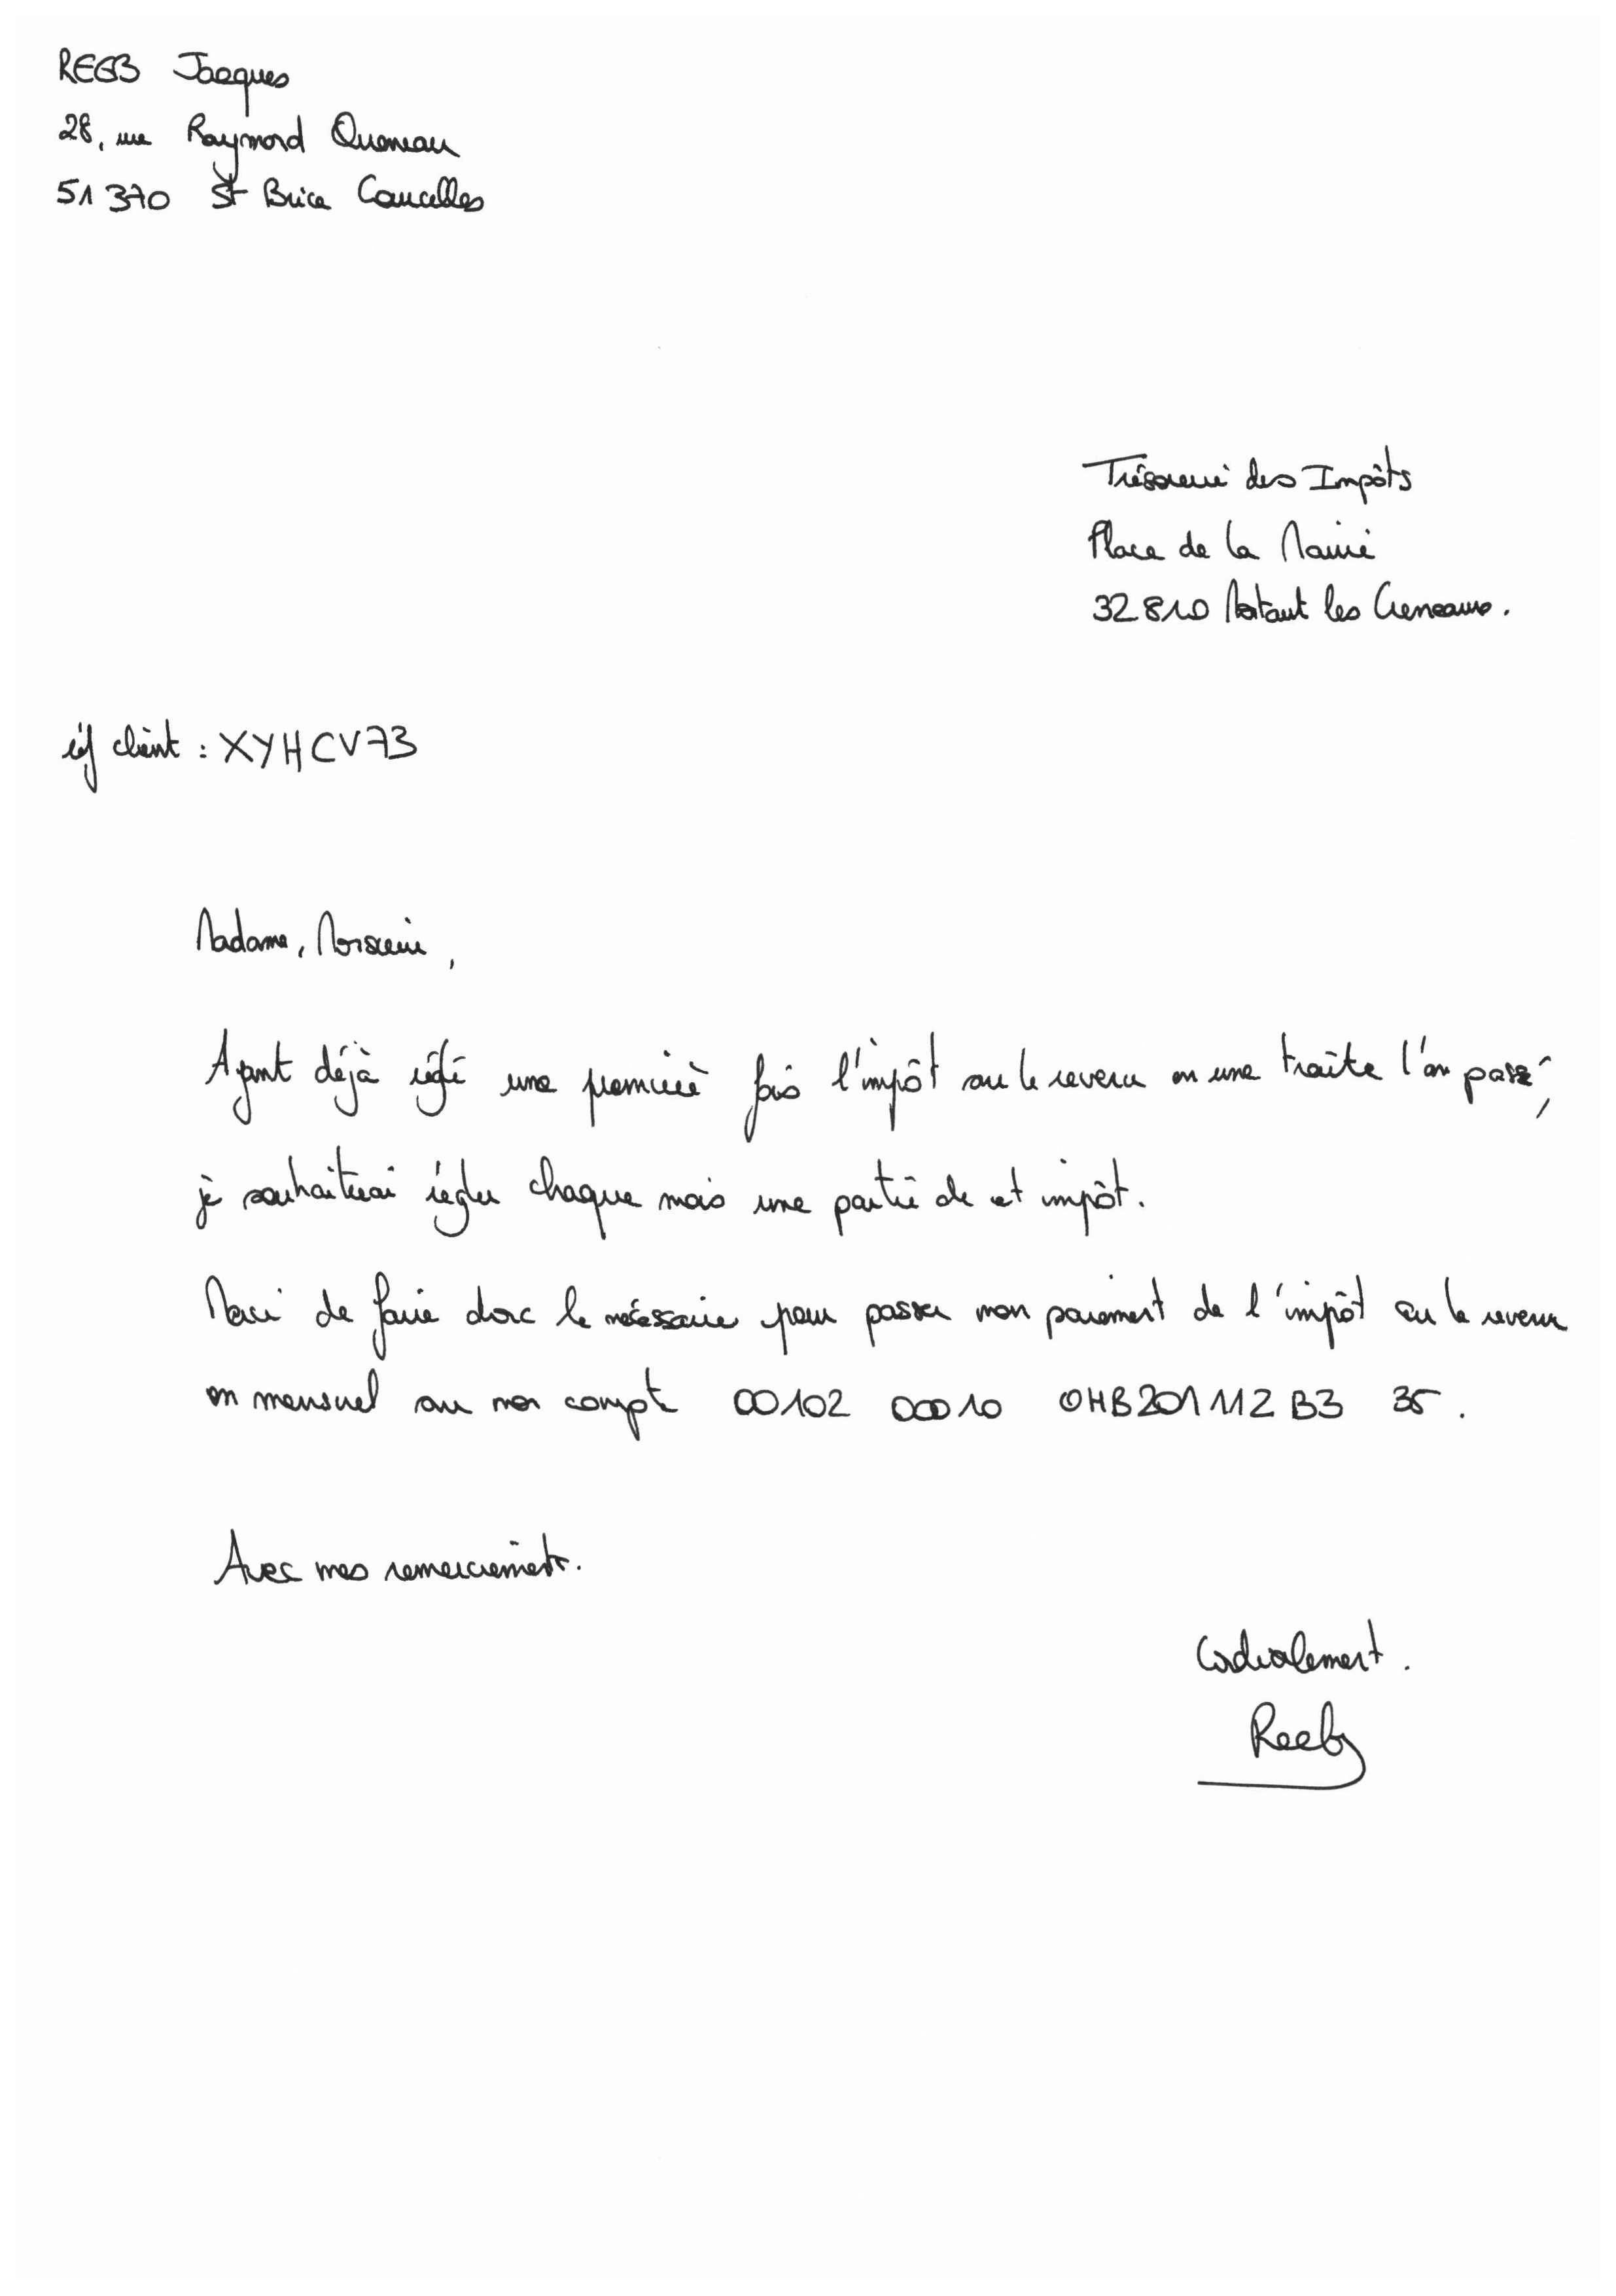 REEB Jacques
28, rue Raymond Queneau
51 370 St Brice Courcelles
Trésorerie des Impôts
Place de la Mairie
32 810 les Creneaux.
réf client : XYHCV73
Madame, Monsieur,
Ayant déjà réglé une première fois l'impôt sur le revenu en une traite l'an passé,
je souhaiterai régler chaque mois une partie de cet impôt.
Merci de faire donc le nécessaire pour passer mon paiement de l'impôt sur le revenu
en mensuel sur mon compte 00102 00010 0HB201112B3 35.
Avec mes remerciements.
Cordialement.
Reeb